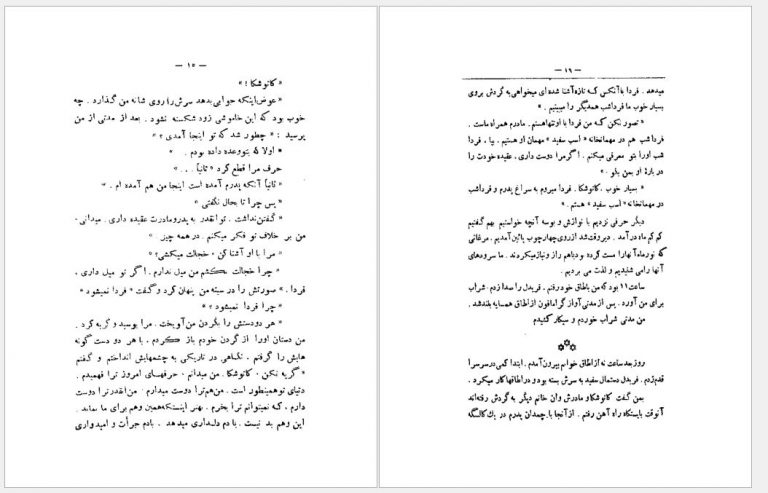 — ۱۵ —
« کاتوشکا ! »
« عوض اینکه جوابی بدهد سرش را روی شانه من گذارد . چه
خوب بود که این خاموشی زود شکسته نشود . بعد از مدتی از من
پرسید : « چطور شد که تو اینجا آمدی ؟ »
« اولا که بتو وعده داده بودم . »
حرف مرا قطع کرد « ثانیاً . . . »
« ثانیاً آنکه پدرم آمده است اینجا من هم آمده ام . »
« پس چرا تا بحال نگفتی »
« گفتن نداشت . تو آنقدر به پدر و مادرت عقیده داری . میدانی .
من بر خلاف تو فکر میکنم . در همه چیز . »
« مرا با او آشنا کن ، خجالت میکشی ؟ »
« چرا خجالت بکشم من میل ندارم . اگر تو میل داری ،
فردا . » صورتش را در سینه من پنهان کرد و گفت « فردا نمیشود »
« چرا فردا نمیشود ؟ »
« هر دو دستش را بگردن من آویخت . مرا بوسید و گریه کرد .
من دستان اورا از گردن خودم باز کردم ، با هر دو دست گونه
هایش را گرفتم ، نگاهی در تاریکی به چشمهایش انداختم و گفتم
« گریه نکن ، کاتوشکا . من میدانم ، حرفهای امروز ترا فهمیدم .
دنیای تو همینطور است . من هم ترا دوست میدارم . من آنقدر ترا دوست
دارم ، که نمیتوانم ترا بخرم . بهتر اینستکه همین وهم برای ما بماند .
این وهم بد نیست . با دم دلداری میدهد . بادم جرأت و امیدواری
— ۱۶ —
میدهد . فردا با آنکس که تازه آشنا شده ای میخواهی به گردش بروی
بسیار خوب ما فردا شب همدیگر را میبینیم . »
« تصور نکن که من فردا با او تنها هستم . مادرم همراه ماست .
فردا شب هم در مهمانخانه « اسب سفید » مهمان او هستیم . بیا ، فردا
شب اورا بتو معرفی میکنم . اگر مرا دوست داری ، عقیده خودت را
در بارهٔ او بمن بگو . »
« بسیار خوب . کاتوشکا . فردا میروم به سراغ پدرم و فردا شب
در مهمانخانه « اسب سفید » هستم . »
دیگر حرفی نزدیم با نوازش و بوسه آنچه خواستیم بهم گفتیم
کم کم ماه در آمد . دیروقت شد از روی چهارچوب پائین آمدیم . مرغانی
که نور ماه آنها را مست کرده بود باهم راز و نیاز میکردند . ما سرودهای
آنها را می شنیدیم و لذت می بردیم .
ساعت ۱۱ بود که من باطاق خود رفتم . فریدل را صدا زدم . شراب
برای من آورد . پس از مدتی آواز گرامافون از اطاق همسایه بلند شد .
من مدتی شراب خوردم و سیگار کشیدم
روز بعد ساعت نه از اطاق خوابم بیرون آمدم . ابتدا کمی در سرسرا
قدم زدم . فریدل دستمال سفید به سرش بسته بود و در اطاقها کار میکرد .
بمن گفت کاتوشکا و مادرش و آن خانم دیگر به گردش رفته اند
آنوقت بایستگاه راه آهن رفتم . از آنجا با چمدان پدرم در یک کالسگه